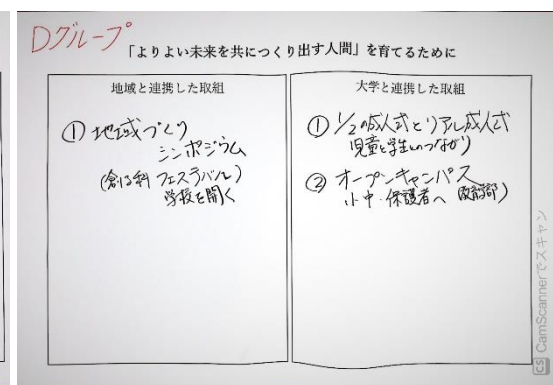 Dグループ
「よりよい未来を共につくり出す人間」を育てるために
地域と連携した取組
① 地域づくり
シンポジウム
(創る科 フェスティバル)
学校を開く
大学と連携した取組
① 1/2の成人式とリアル成人式
児童と学生とのつながり
② オープンキャンパス
小中・保護者へ
CS CamScannerでスキャン